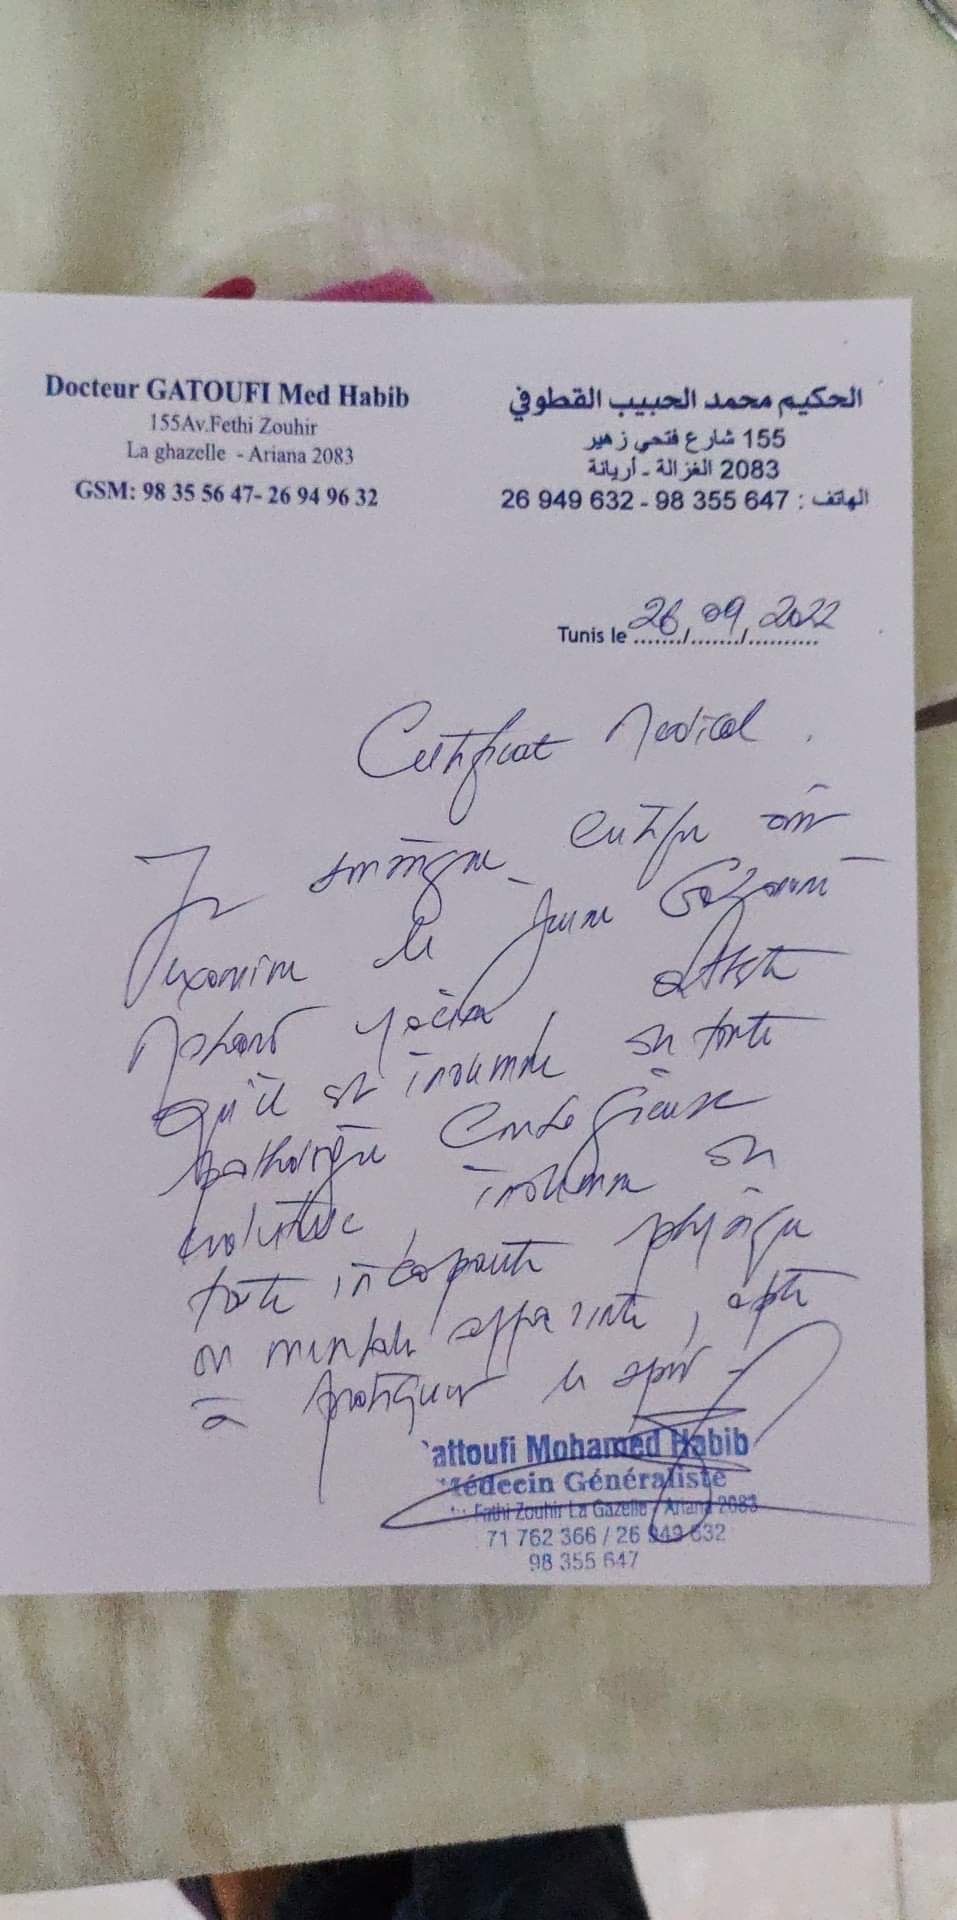 Docteur GATOUFI Med Habib
155Av.Fethi Zouhir
La ghazelle - Ariana 2083
GSM: 98 35 56 47- 26 94 96 32
الحكيم محمد الحبيب القطوفي
155 شارع فتحي زهير
2083 الغزالة - أريانة
الهاتف : 98 355 647 - 26 949 632
Tunis le 26/09/2022
Certificat Medical.
Je soussigné certifie avoir
examiné le jeune
Yacine, atteste
qu'il est indemne de toute
pathologie contagieuse
évolutive, indemne de
toute incapacité physique
ou mentale apparente, apte
à pratiquer le sport
attoufi Mohamed Habib
Médecin Généraliste
Fathi Zouhir La Gazelle / Ariana 2083
71 762 366 / 26 949 632
98 355 647